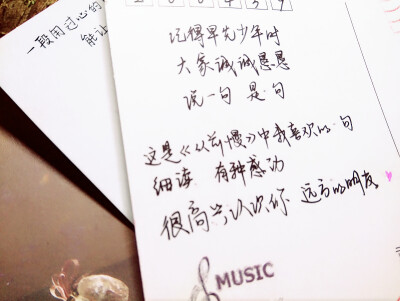 一段用过心的
能让
记得早先少年时
大家诚诚恳恳
说一句 是一句
这是《从前慢》中我喜欢的一句
细读 有种感动
很高兴认识你 远方的朋友
MUSIC